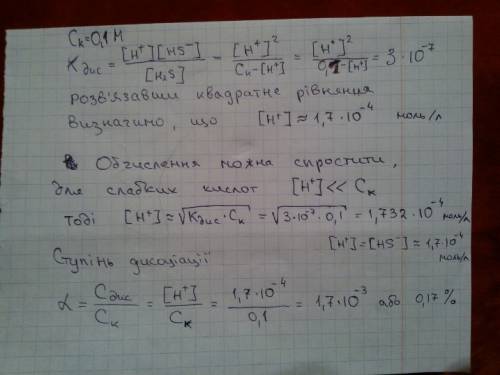 Cк=0,1 M
Kдис = [H⁺][HS⁻]/[H₂S] - [H⁺]²/(Cк-[H⁺]) = [H⁺]²/(0,1-[H⁺]) = 3·10⁻⁷
розв'язавши квадратне рівняння
визначимо, що [H⁺] ≈ 1,7·10⁻⁴ моль/л
Обчислення можна спростити,
для слабких кислот [H⁺] << Cк
тоді [H⁺] ≈ √(Kдис·Cк) = √(3·10⁻⁷·0,1) = 1,732·10⁻⁴ моль/л
[H⁺]=[HS⁻] ≈ 1,7·10⁻⁴ моль/л
Ступінь дисоціації
α = Cдис/Cк = [H⁺]/Cк = 1,7·10⁻⁴/0,1 = 1,7·10⁻³ або 0,17%